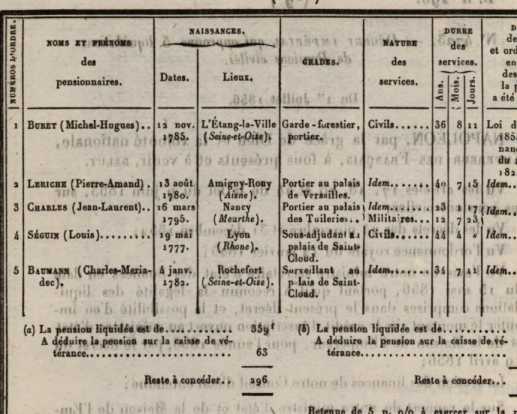 NUMÉROS D'ORDRE.
NOMS ET PRÉNOMS des pensionnaires.
NAISSANCES.
Dates. Lieux.
GRADES.
NATURE des services.
DURÉE des services.
Ans. Mois. Jours.
1 BURET (Michel-Hugues).. 12 nov. 1785. L'Étang-la-Ville (Seine-et-Oise). Garde-forestier, portier. Civils...... 36 8 11 Loi d
2 LERICHE (Pierre-Amand). 13 août 1780. Amigny-Rouy (Aisne). Portier au palais de Versailles. Idem....... 40 7 15 Idem..
3 CHARLES (Jean-Laurent).. 16 mars 1795. Nancy (Meurthe). Portier au palais des Tuileries.. Civils Idem..
Militaires... 12 7 23
4 SÉGUIN (Louis)......... 19 mai 1777. Lyon (Rhône). Sous-adjudant au palais de Saint-Cloud. Civils...... 44 4 Idem..
5 BAUMANN (Charles-Meriadec). 4 janv. 1782. Rochefort (Seine-et-Oise). Surveillant au palais de Saint-Cloud. Idem....... 34 7 21 Idem..
(a) La pension liquidée est de........ 359f
A déduire la pension sur la caisse de vétérance........ 63
Reste à concéder.. 296
(b) La pension liquidée est de......
A déduire la pension sur la caisse de vétérance........
Reste à concéder...
Retenue de 5 p. 0/0 à exercer sur la